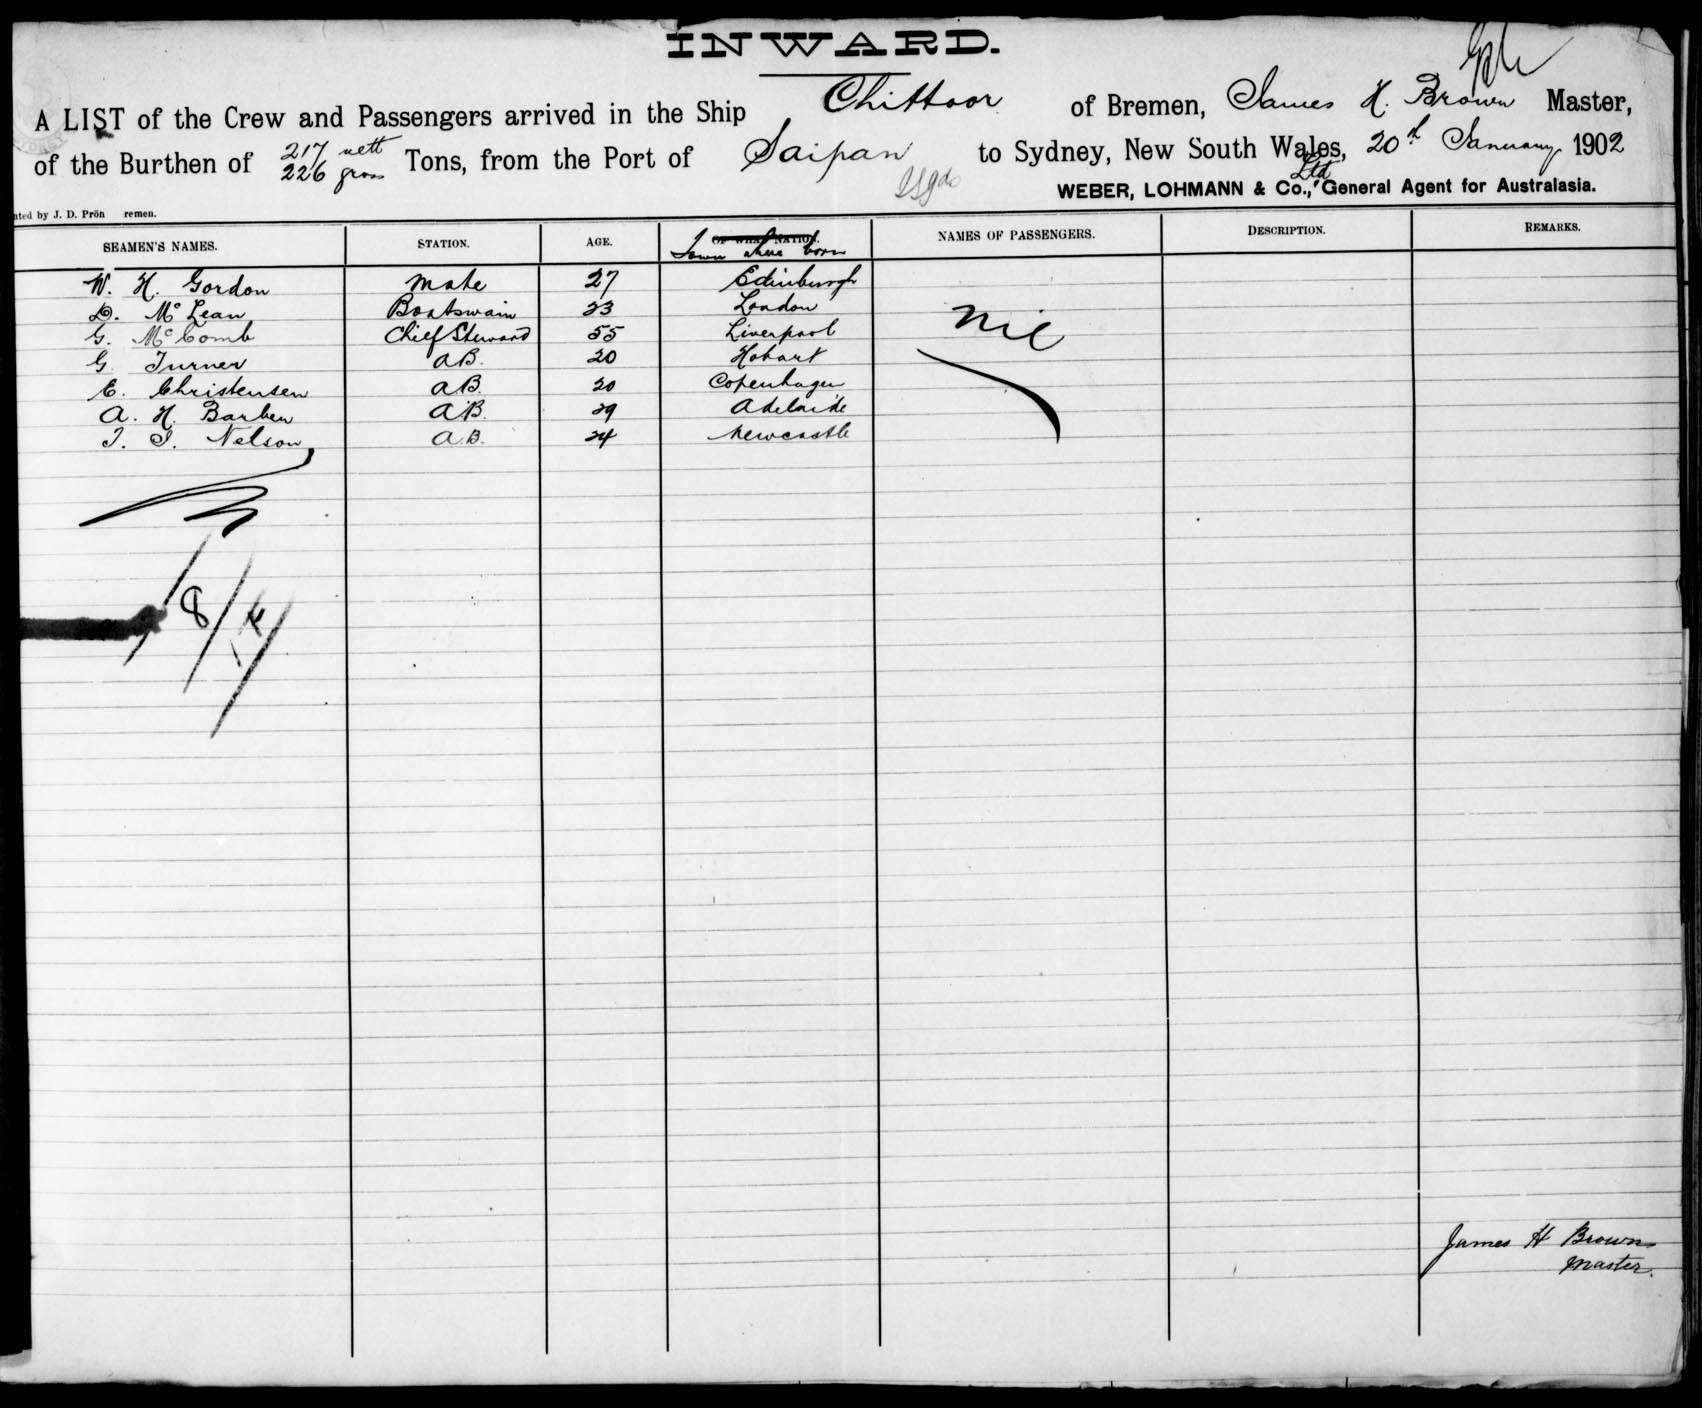 INWARD.
A LIST of the Crew and Passengers arrived in the Ship Chittoor of Bremen, James H. Brown Master,
of the Burthen of 217 nett 226 gross Tons, from the Port of Saipan to Sydney, New South Wales, 20th January 1902
WEBER, LOHMANN & Co., Ltd General Agent for Australasia.
nted by J. D. Prön remen.
SEAMEN'S NAMES. STATION. AGE. OF WHAT NATION. Town where born NAMES OF PASSENGERS. DESCRIPTION. REMARKS.
W. H. Gordon Mate 27 Edinburgh
D. McLean Boatswain 23 London Nil
G. McComb Chief Steward 55 Liverpool
G. Turner AB. 20 Hobart
E. Christensen AB. 20 Copenhagen
A. H. Barben AB. 29 Adelaide
T. I. Nelson A.B. 24 Newcastle
8
James H Brown
Master.